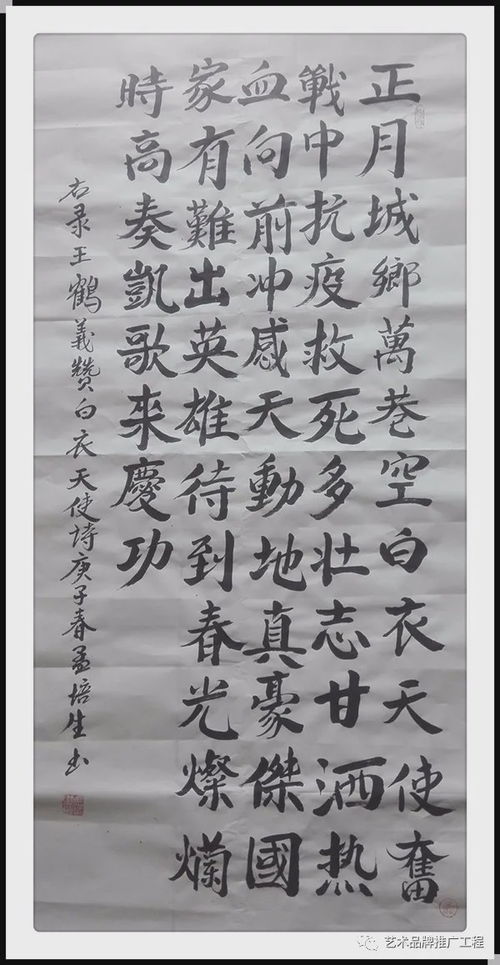 正月城鄉萬巷空白衣天使奮
戰中抗疫救死多壮志甘洒热
血向前冲感天動地真豪傑國
家有難出英雄待到春光燦爛
時高奏凱歌來慶功
右录王鶴義赞白衣天使詩庚子春孟培生书
艺术品牌推广工程